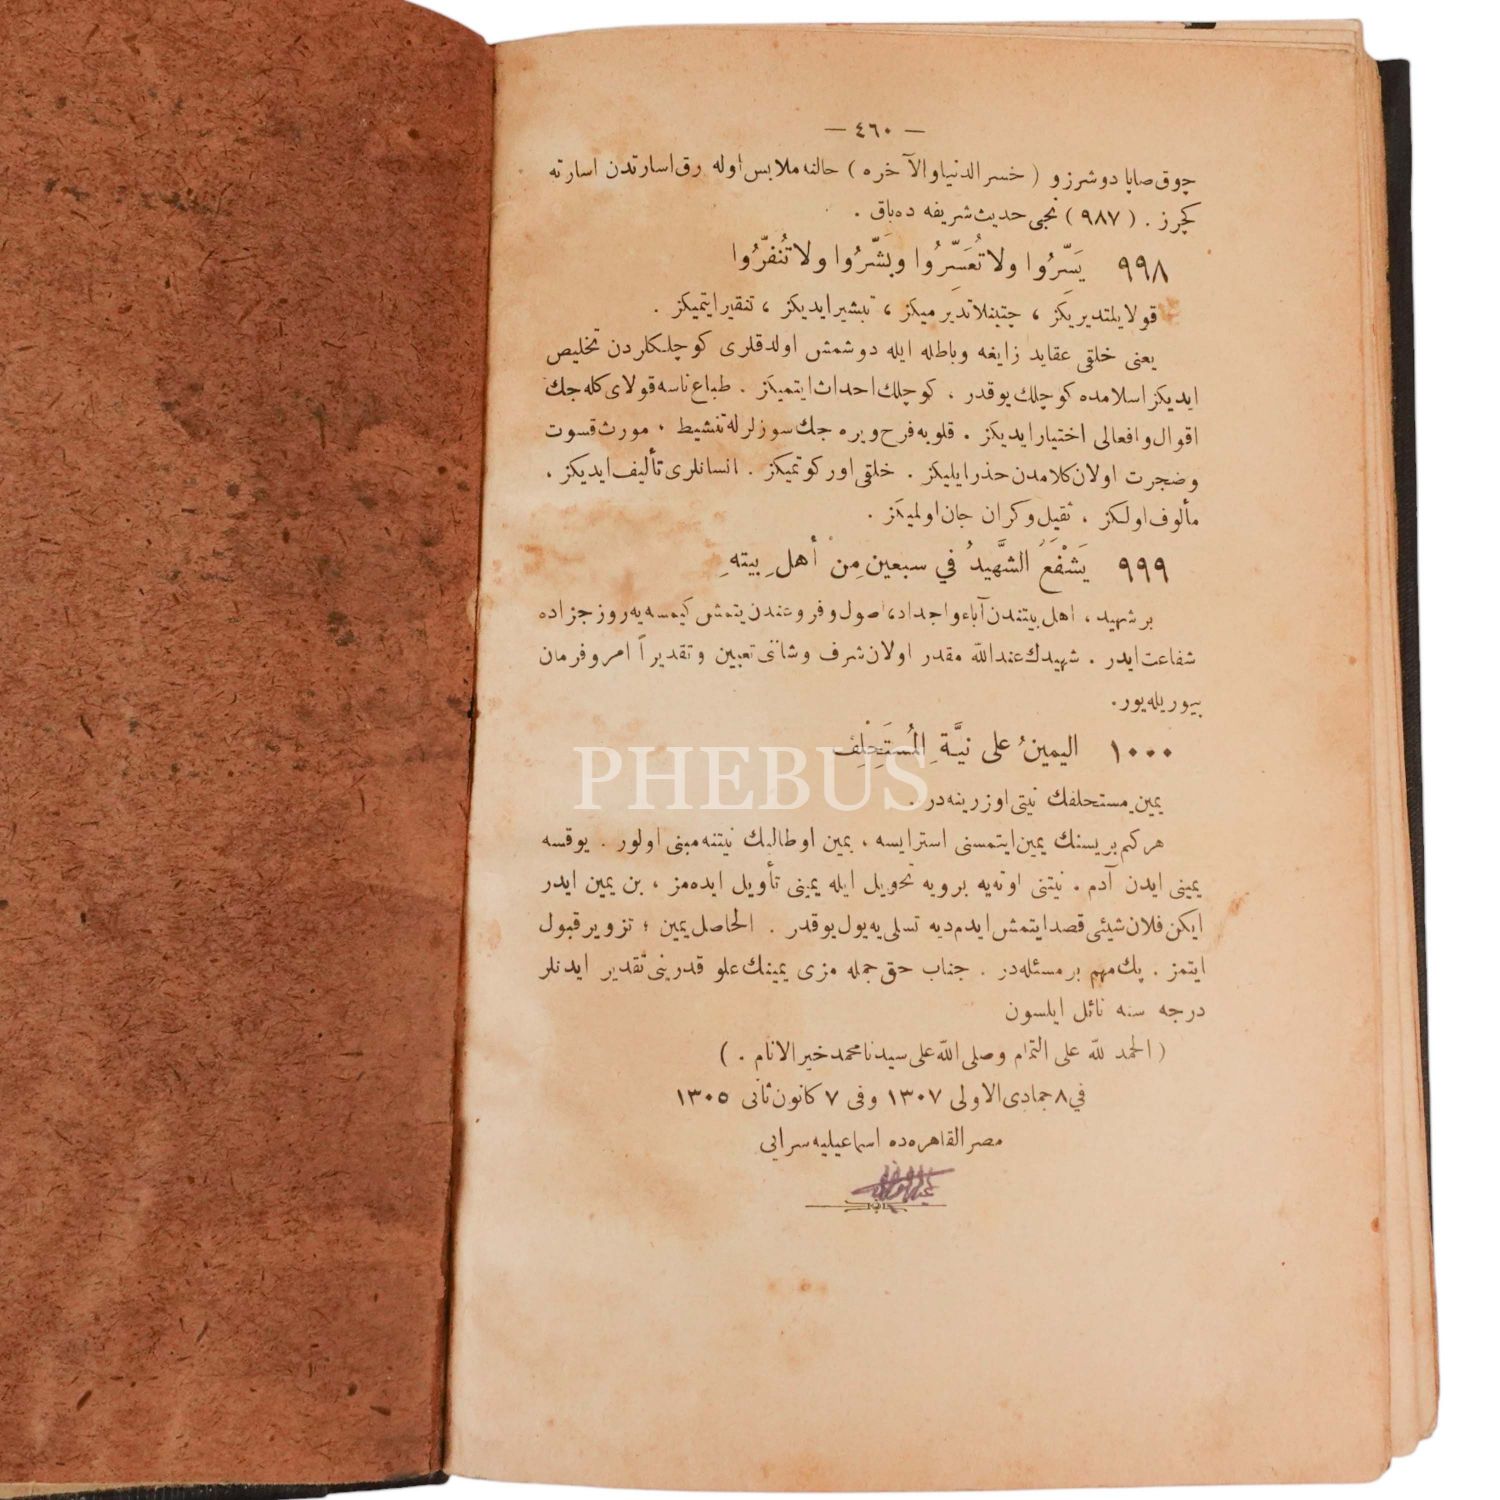 — ٤٦٠ —
چوق صاپا دوشرز و ( خسر الدنیا و الآخره ) حالنه ملابس اوله رق اسارتدن اسارته
کچرز . ( ٩٨٧ ) نجی حدیث شریفه ده باق .
٩٩٨ یَسِّرُوا ولا تُعَسِّرُوا وبَشِّرُوا ولا تُنفّرُوا
قولایلتدیریکز ، چتینلاتدیرمیکز ، تبشیر ایدیکز ، تنفیر ایتمیکز .
یعنی خلقی عقاید زایغه و باطله ایله دوشمش اولدقلری کوچلکلردن تخلیص
ایدیکز اسلامده کوچلك یوقدر . کوچلك احداث ایتمیکز . طباع ناسه قولای کله جك
اقوال و افعالی اختیار ایدیکز . قلوبه فرح ویره جك سوزلرله تنشیط ، مورث قسوت
و ضجرت اولان کلامدن حذر ایلیکز . خلقی اورکوتمیکز . انسانلری تألیف ایدیکز .
مألوف اولکز . ثقیل و کران جان اولمیکز .
٩٩٩ یَشْفَعُ الشَّهیدُ في سبعین مِنْ أهلِ بیتهِ
بر شهید ، اهل بیتندن آباء و اجداد ، اصول و فروعندن یتمش کیمسه یه روز جزاده
شفاعت ایدر . شهیدك عندالله مقدر اولان شرف و شاننی تعیین و تقدیراً امر و فرمان
بیوریله یور .
١٠٠٠ الیمینُ علی نیَّةِ المُستَحْلِف
PHEBUS
یمین مستحلفك نیتی اوزرینه در .
هر کم بریسنك یمین ایتمسنی استرایسه ، یمین او طالبك نیتنه مبنی اولور . یوقسه
یمینی ایدن آدم . نیتنی اوته یه برویه تحویل ایله یمینی تأویل ایده مز ، بن یمین ایدر
ایکن فلان شیئی قصد ایتمش ایدم دیه تسلی یه یول یوقدر . الحاصل یمین ؛ تزویر قبول
ایتمز . پك مهم بر مسئله در . جناب حق جمله مزی یمینك علو قدرینی تقدیر ایدنلر
درجه سنه نائل ایلسون
( الحمد لله علی التمام وصلی الله علی سیدنا محمد خیر الانام . )
في ٨ جمادی الاولی ١٣٠٧ وفی ٧ کانون ثانی ١٣٠٥
مصر القاهره ده اسماعیلیه سرایی